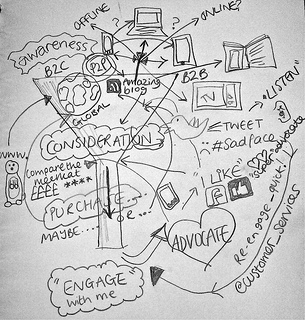 OFFLINE
?
?
ONLINE?
awareness
B2C
P2P
B2B
Amazing
blog
GLOBAL
TV
"LISTEN"
CONSIDERATION
TWEET
#Sadface
WWW.
Compare the
meerkat
££££ ****
"LIKE"
f
super advocate
PURCHASE...
MAYBE...
OR...
ADVOCATE
Re-engage - quick!
@customer_services
"ENGAGE"
with me